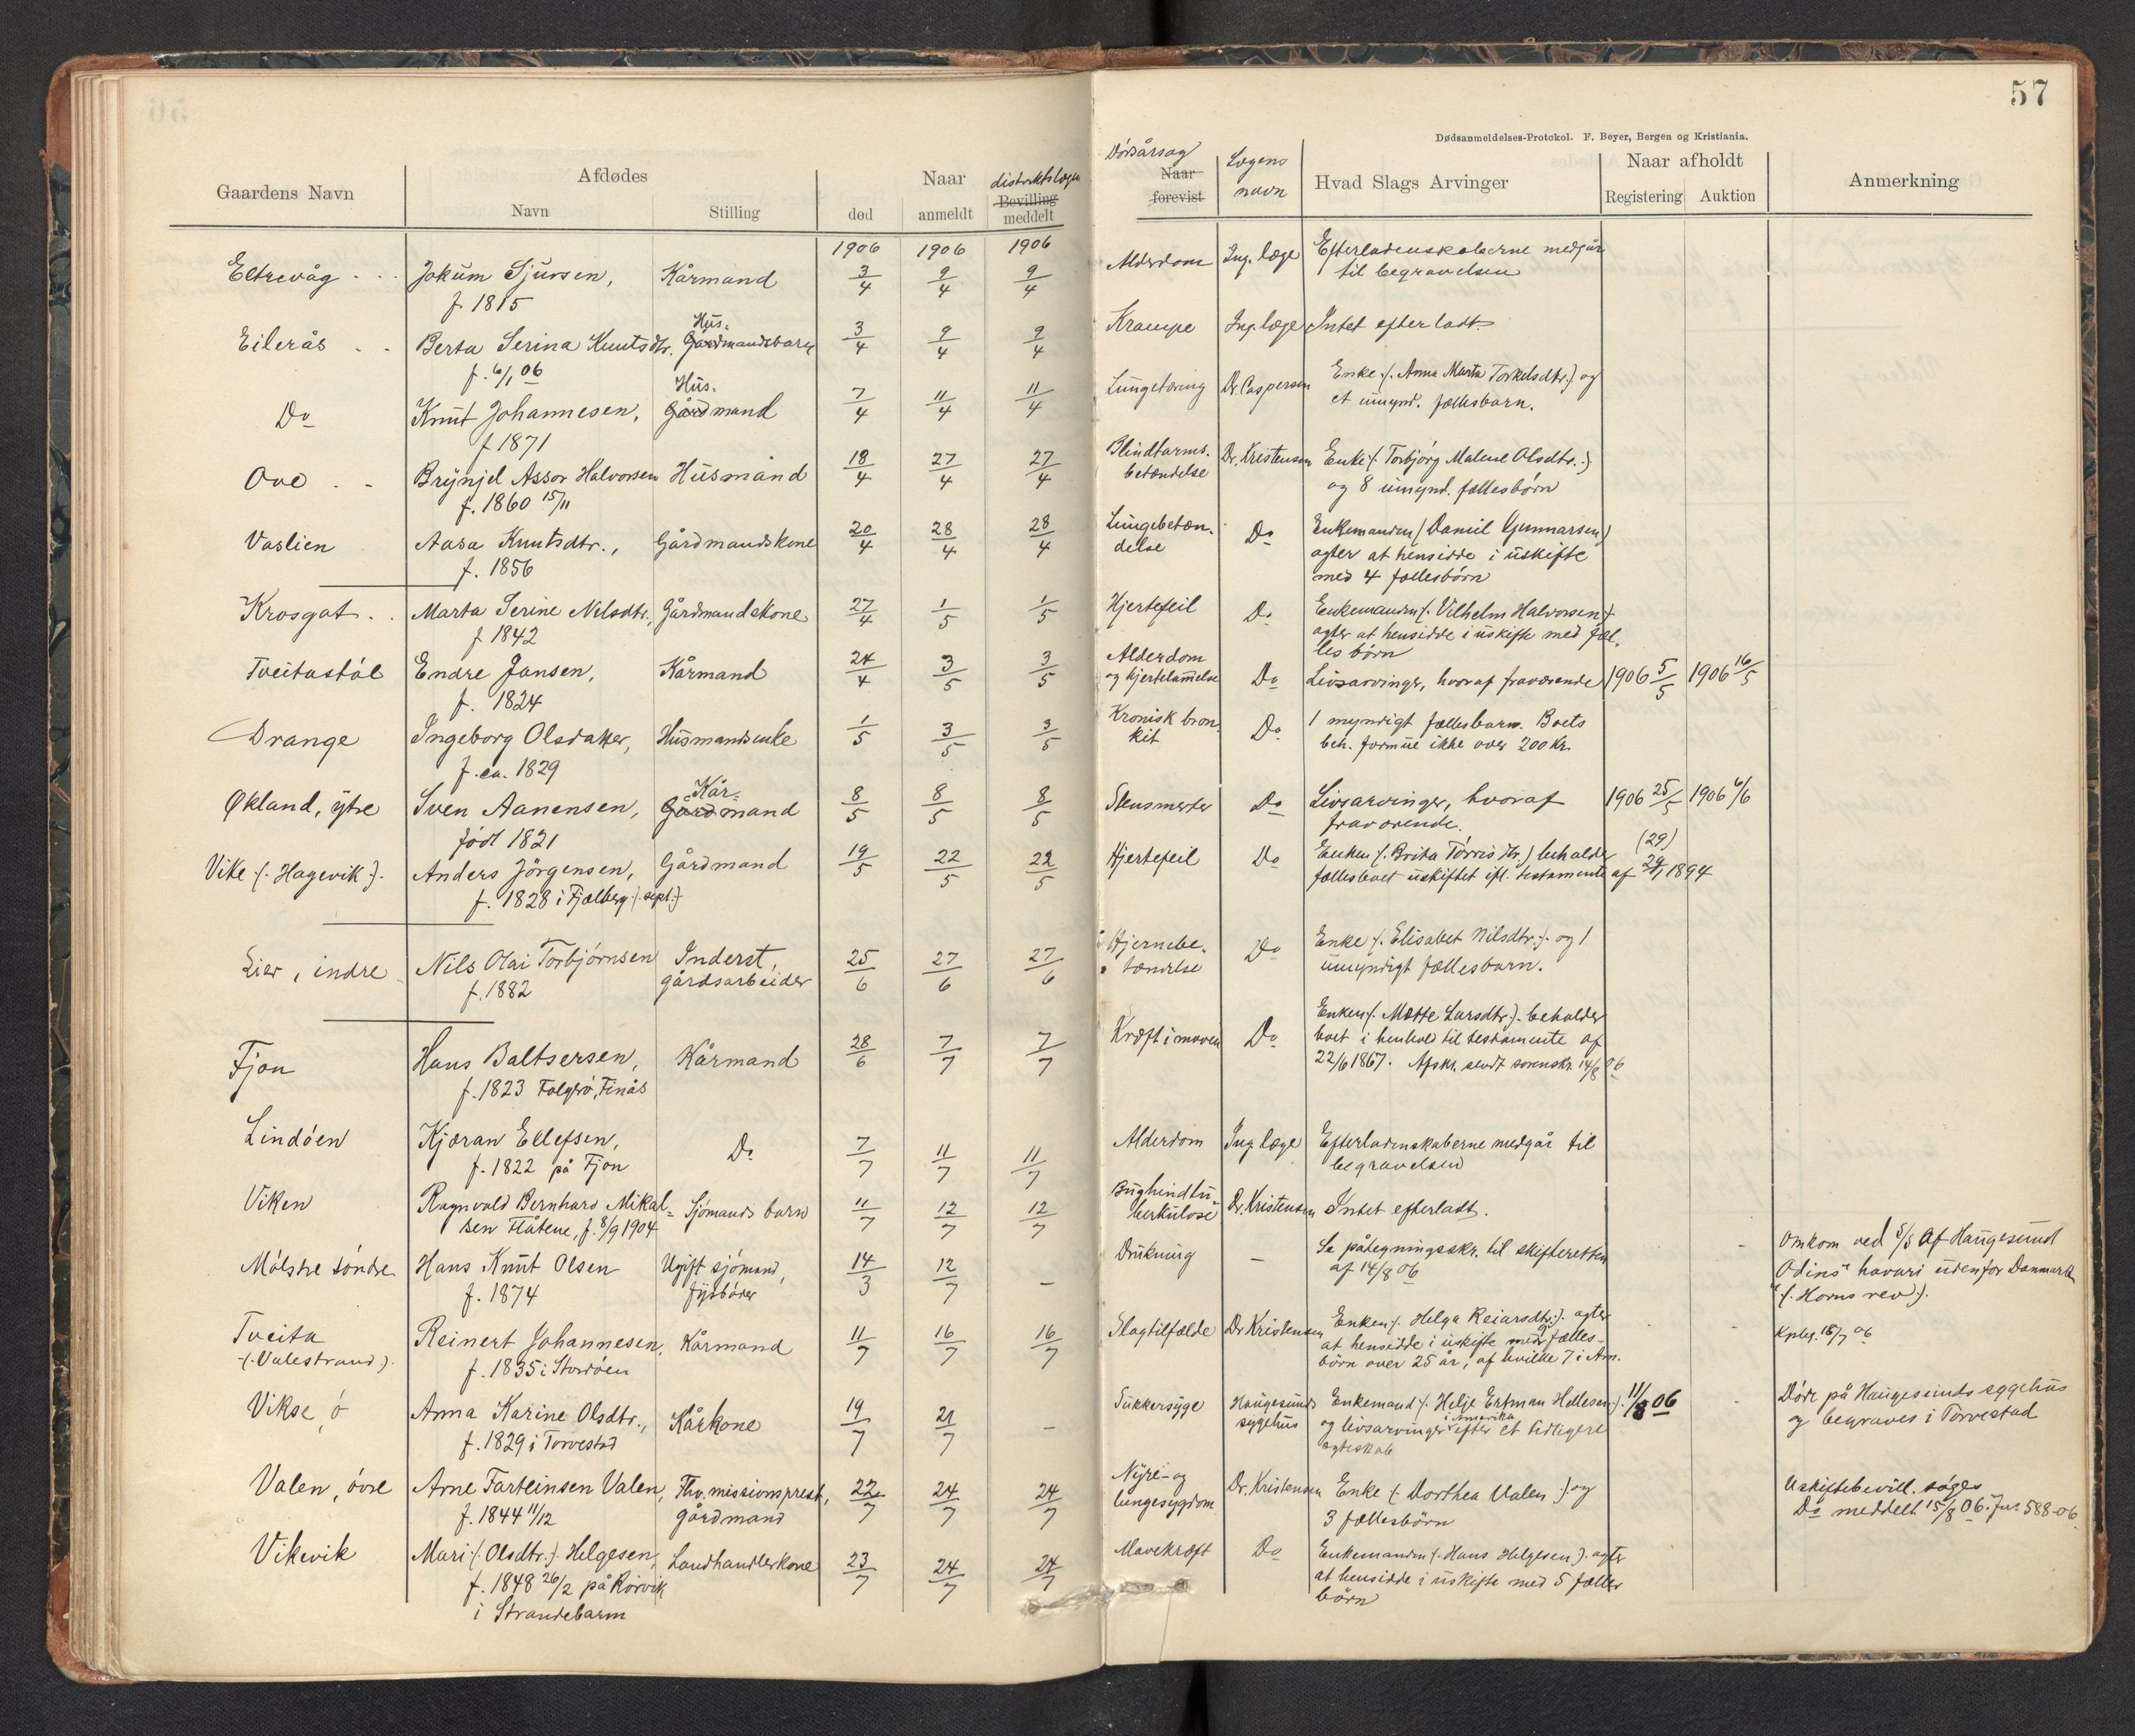 57
Dødsanmeldelses-Protokol. F. Beyer, Bergen og Kristiania.
Gaardens Navn
Afdødes
Navn
Stilling
Naar
død
anmeldt
distriktslægen
Bevilling
meddelt
Dødsårsag
Naar
forevist
Lægens
navn
Hvad Slags Arvinger
Naar afholdt
Registering
Auktion
Anmerkning
1906 1906 1906
Eltrevåg Jokum Sjursen, Kårmand 3/4 9/4 9/4 Alderdom Ing. læge Efterladenskaberne medgår
f. 1815 til begravelsen
Eilerås Berta Serina Knutsdtr. Hus- Gårdmandsbarn 3/4 9/4 9/4 Krampe Ing. læge Intet efterladt
f. 6/1 06
Do Knut Johannesen, Hus- Gårdmand 7/4 11/4 11/4 Lungetæring Dr. Caspersen Enke (. Anna Marta Torkelsdtr.) og
f 1871 et umynd. fællesbarn.
Ove Brynjel Assor Halvorsen Husmand 18/4 27/4 27/4 Blindtarms- Dr. Kristensen Enke (. Torbjørg Malene Olsdtr.)
f. 1860 15/11 betændelse og 8 umynd. fællesbørn
Vaslien Aasa Knutsdtr., Gårdmandskone 20/4 28/4 28/4 Lungebetæn- Do Enkemanden (Daniel Gunnarsen)
f. 1856 delse agter at hensidde i uskifte
med 4 fællesbørn
Krosgat Marta Serine Nilsdtr., Gårdmandskone 27/4 1/5 1/5 Hjertefeil Do Enkemanden (. Vilhelm Halvorsen).
f 1842 agter at hensidde i uskifte med fæl-
les børn
Tveitastøl Endre Jansen, Kårmand 24/4 3/5 3/5 Alderdom Do Livsarvinger, hvoraf fraværende 1906 5/5 1906 16/5
f. 1824 og hjertelammelse
Drange Ingeborg Olsdatter, Husmandsenke 1/5 3/5 3/5 Kronisk bron- Do 1 myndigt fællesbarn. Boets
f. ca. 1829 kit beh. formue ikke over 200 Kr.
Økland, ytre Sven Aanensen, Kår- Gårdmand 8/5 8/5 8/5 Do Livsarvinger, hvoraf 1906 25/5 1906 6/6
født 1821 fraværende.
Vike (. Hagevik). Anders Jørgensen, Gårdmand 19/5 22/5 22/5 Hjertefeil Do Enken (. Brita Tørris dtr.) beholder (29)
f. 1828 i Fjelberg (. sept.) fællesboet uskiftet ifl. testamente af 29/1 1894
Eier, indre Nils Olai Torbjørnsen Inderst, 25/6 27/6 27/6 Hjernebe- Do Enke (. Elisabet Nilsdtr.). og 1
f. 1882 gårdsarbeider tændelse umyndigt fællesbarn.
Fjon Hans Baltsersen, Kårmand 28/6 7/7 7/7 Kræft i maven Do Enken (. Mette Larsdtr.). beholder
f. 1823 Folgerø, Finås boet i henhold til testamente af
22/6 1867. Afskr. sendt sorenskr. 14/8 06
Lindøen Kjæran Ellefsen, Do 7/7 11/7 11/7 Alderdom Ing. læge Efterladenskaberne medgår til
f. 1822 på Fjon begravelsen
Viken Ragnvald Bernhard Mikal- Sjømands barn 11/7 12/7 12/7 Bughindtu- Dr. Kristensen Intet efterladt.
sen Flatene, f. 8/9 1904 berkulose
Mølstre søndre Hans Knut Olsen Ugift sjømand, 14/3 12/7 - Drukning - Se påtegningsskr. til skifteretten Omkom ved S/S Af Haugesund
f. 1874 fyrbøder af 14/8 06 Odins" havari udenfor Danmark
(. Horns rev).
Tveita Reinert Johannesen, Kårmand 11/7 16/7 16/7 Slagtilfælde Dr Kristensen Enken (. Helga Reiarsdtr.). agter
(. Valestrand). f. 1835 i Stordøen at hensidde i uskifte med 9 fælles- Kpleg. 16/7 06
børn over 25 år, af hvilke 7 i Am.
Vikse, ø Anna Karine Olsdtr., Kårkone 19/7 21/7 - Sukkersyge Haugesunds Enkemand (. Helje Ertman Hellesen). 11/8 06 Døde på Haugesunds sygehus
f. 1829 i Torvestad sygehus og livsarvinger i Amerika efter et tidligere og begraves i Torvestad
ægteskab
Valen, øvre Arne Farteinsen Valen, Fhv. missionsprest, 22/7 24/7 24/7 Nyre- og Dr. Kristensen Enke (. Dorthea Valen) og Uskiftebevill. søges
f. 1844 11/12 gårdmand lungesygdom 3 fællesbørn Do meddelt 15/8 06. Jur 588-06.
Vikevik Mari (. Olsdtr.). Helgesen, Landhandlerkone 23/7 24/7 24/7 Mavekræft Do Enkemanden (. Hans Helgesen). agter
f. 1848 26/2 på Rørvik at hensidde i uskifte med 5 fælles
i Strandebarm børn